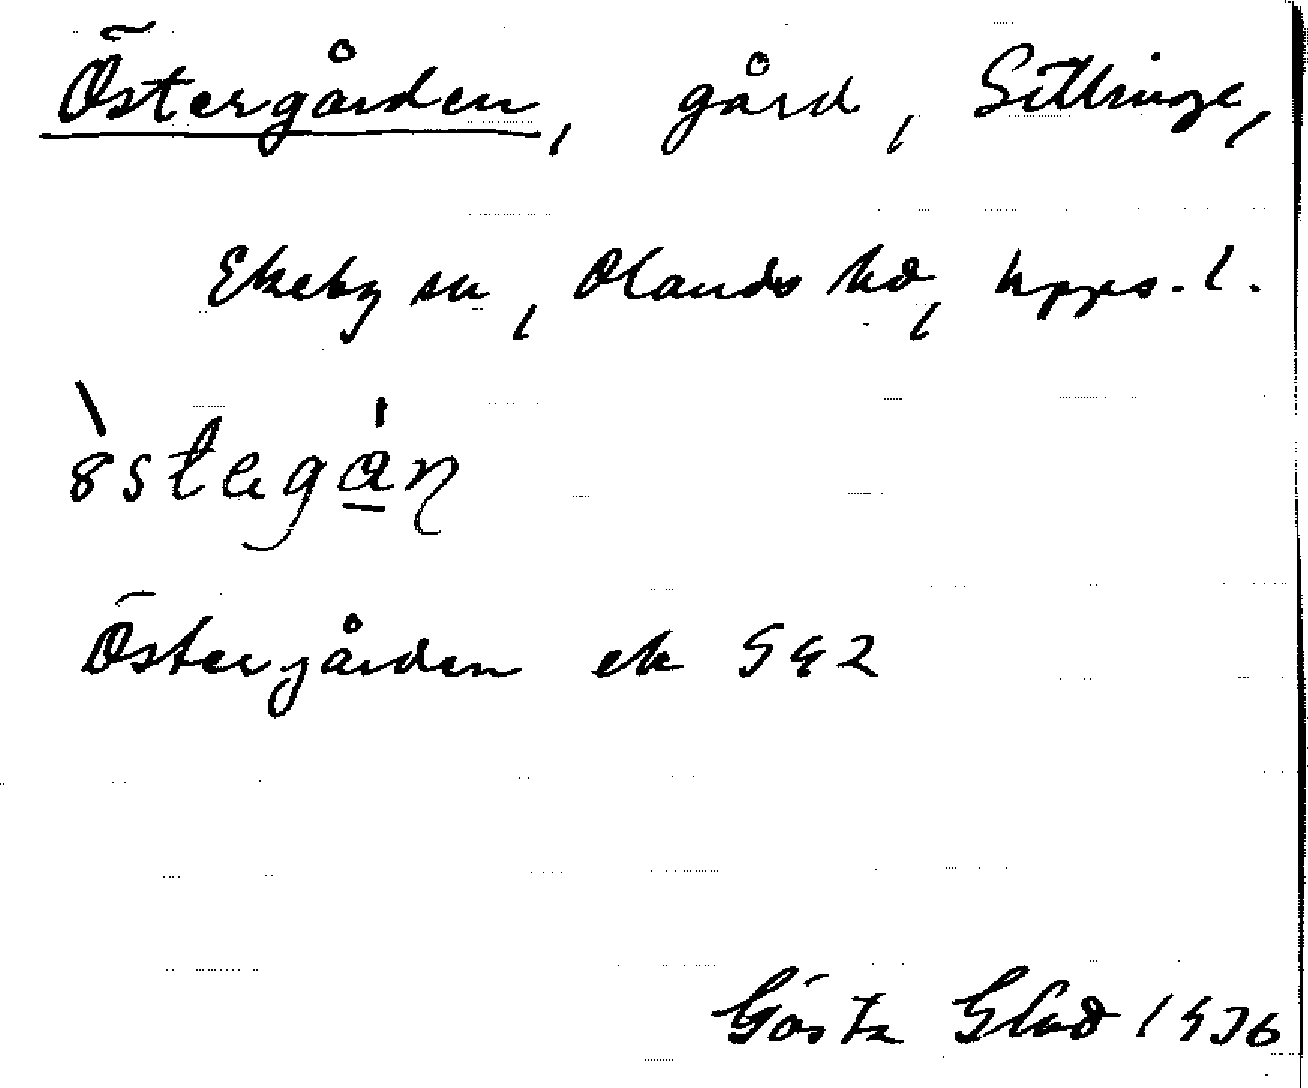 Östergården, gård, Sittinge,
Ekeby sn, Olands hd, Upps. l.
Östergården ek 5 G 2
Gösta Glad 1936